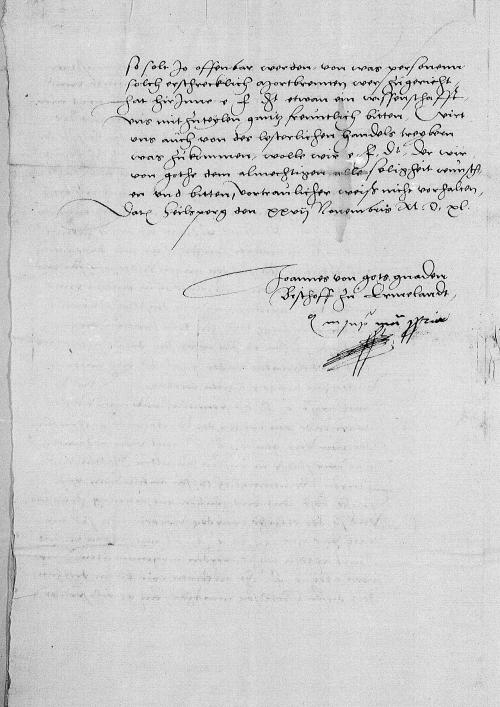 so solt jo offenbar werden von was personenn
solch erschrecklich mortbrennen wer zugericht,
hat hirjnne e f Dt etwan ein wyssenschafft,
uns mitzuteylen gantz freuntlich bitten Wirt
uns auch von des lesterlichen handels
was zukommen, wolle wir e f Dt der wir
von gothe dem almechtigen alle seligheit wunsch
en und bitten, vertraulicher weiss nicht vorhalten,
Datz Heilsperg den xxvij Novembris M. D. xl.
Joannes von gots gnaden
Bischoff zu Ermelandt,
manu ppria